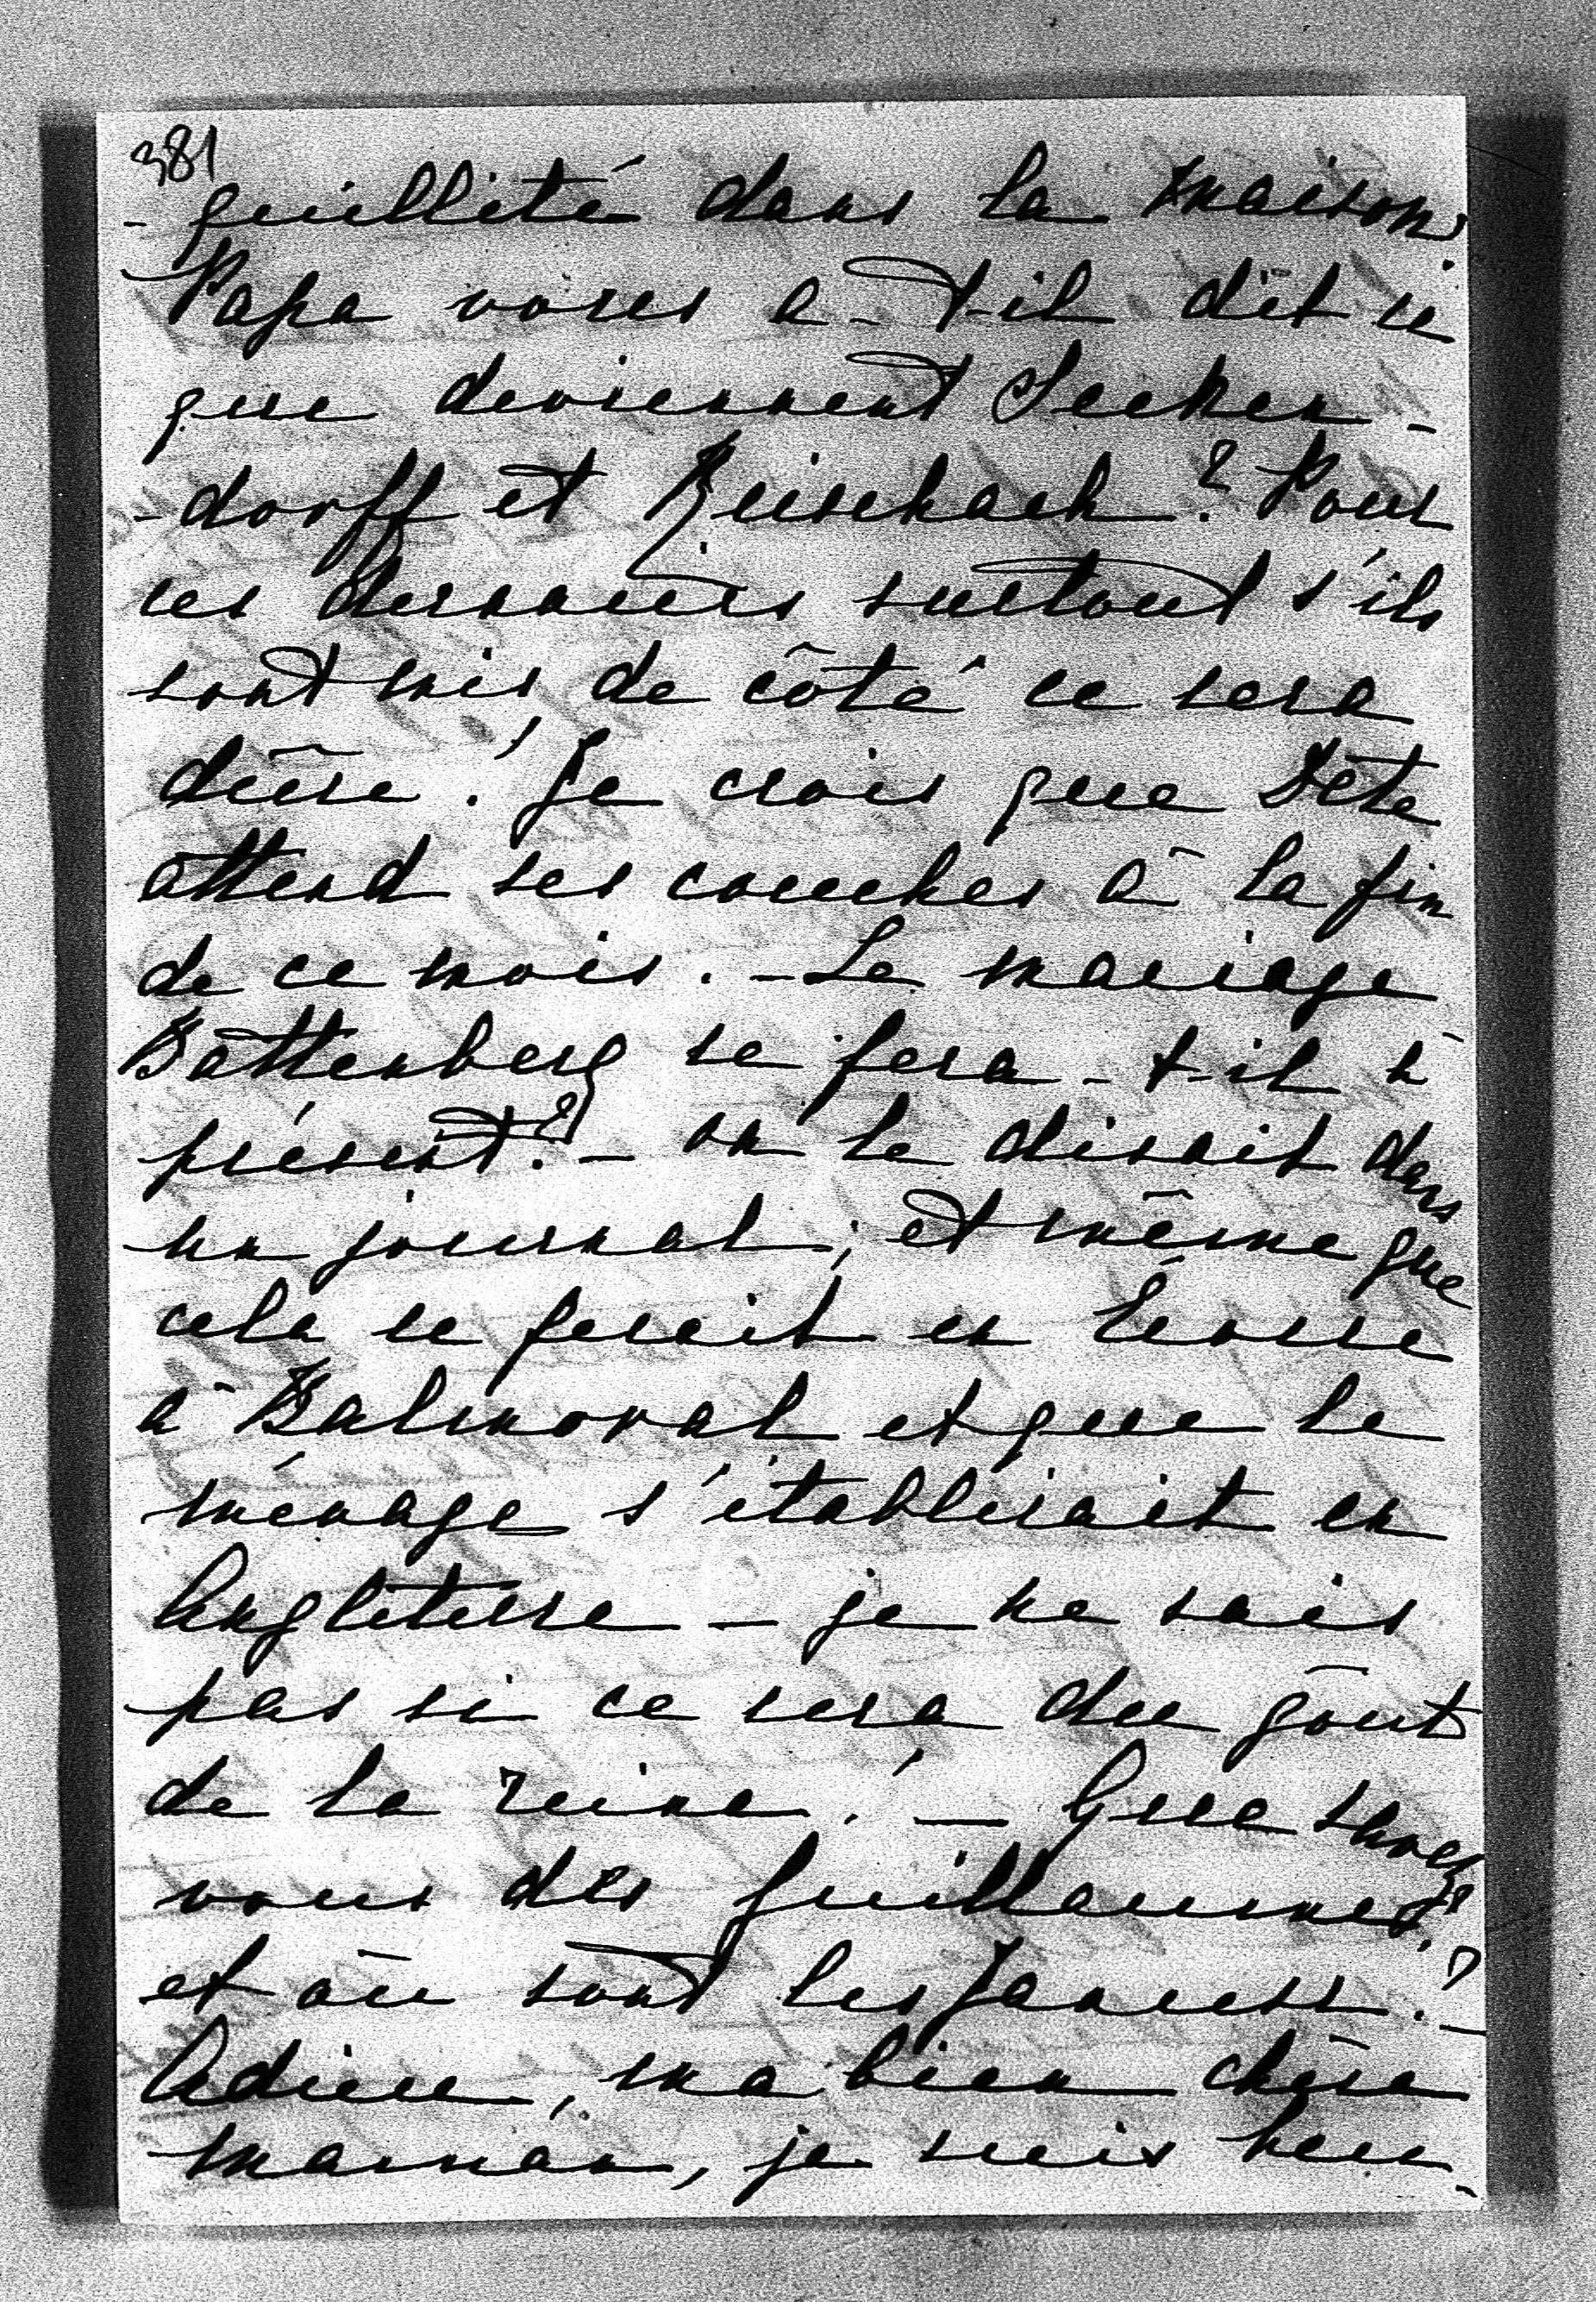 381
- quillité dans la maison.
Papa vous a-t-il dit ce
que deviennent Secken-
-dorff et Reischach? Pour
ces derniers surtout s'ils
sont mis de côté ce sera
dûre! Je crois que Déta
attend ses couches à la fin
de ce mois. - Le mariage
Battenberg se fera-t-il à
présent? - on le disait dans
un journal; et même que
cela se ferait en Écosse
à Balmoral et que le
ménage s'établirait en
Angleterre - je ne sais
pas si ce sera du goût
de la reine! - Que savez
vous des Guillaumes?
et où sont les Januss? -
Adieu, ma bien chère
maman, je suis heu-